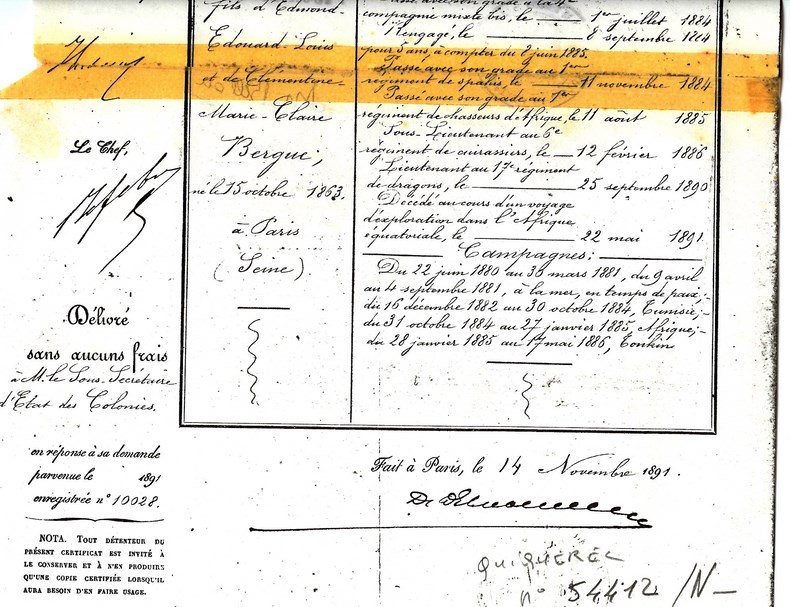 fils d'Edmond-
Edouard-Louis
et de Clémentine-
Marie-Claire
Bergue;
né le 15 octobre 1863.
à Paris
(Seine)
compagnie mixte bis, le 1er juillet 1884
Rengagé, le 8 septembre 1884
pour 5 ans, à compter du 8 juin 1885.
Passé avec son grade au 1er
régiment de spahis, le 11 novembre 1884
Passé avec son grade au 1er
régiment de chasseurs d'Afrique, le 11 août 1885
Sous-Lieutenant au 6e
régiment de cuirassiers, le 12 février 1886
Lieutenant au 17e régiment
de dragons, le 25 septembre 1890
Décédé au cours d'un voyage
d'exploration dans l'Afrique
équatoriale, le 22 mai 1891.
Campagnes:
Du 22 juin 1880 au 30 mars 1881, du 9 avril
au 4 septembre 1881, à la mer, en temps de paix;-
du 16 décembre 1882 au 30 octobre 1884, Tunisie;-
du 31 octobre 1884 au 27 janvier 1885, Afrique;-
du 28 janvier 1885 au 17 mai 1886, Tonkin
Le Chef,
Délivré
sans aucuns frais
à M. le Sous-Secrétaire
d'Etat des Colonies.
en réponse à sa demande
parvenue le 1891
enregistrée n° 10028.
NOTA. TOUT DÉTENTEUR DU
PRÉSENT CERTIFICAT EST INVITÉ À
LE CONSERVER ET À N'EN PRODUIRE
QU'UNE COPIE CERTIFIÉE LORSQU'IL
AURA BESOIN D'EN FAIRE USAGE.
Fait à Paris, le 14 Novembre 1891.
QUIQUEREC
n° 54412 /N-